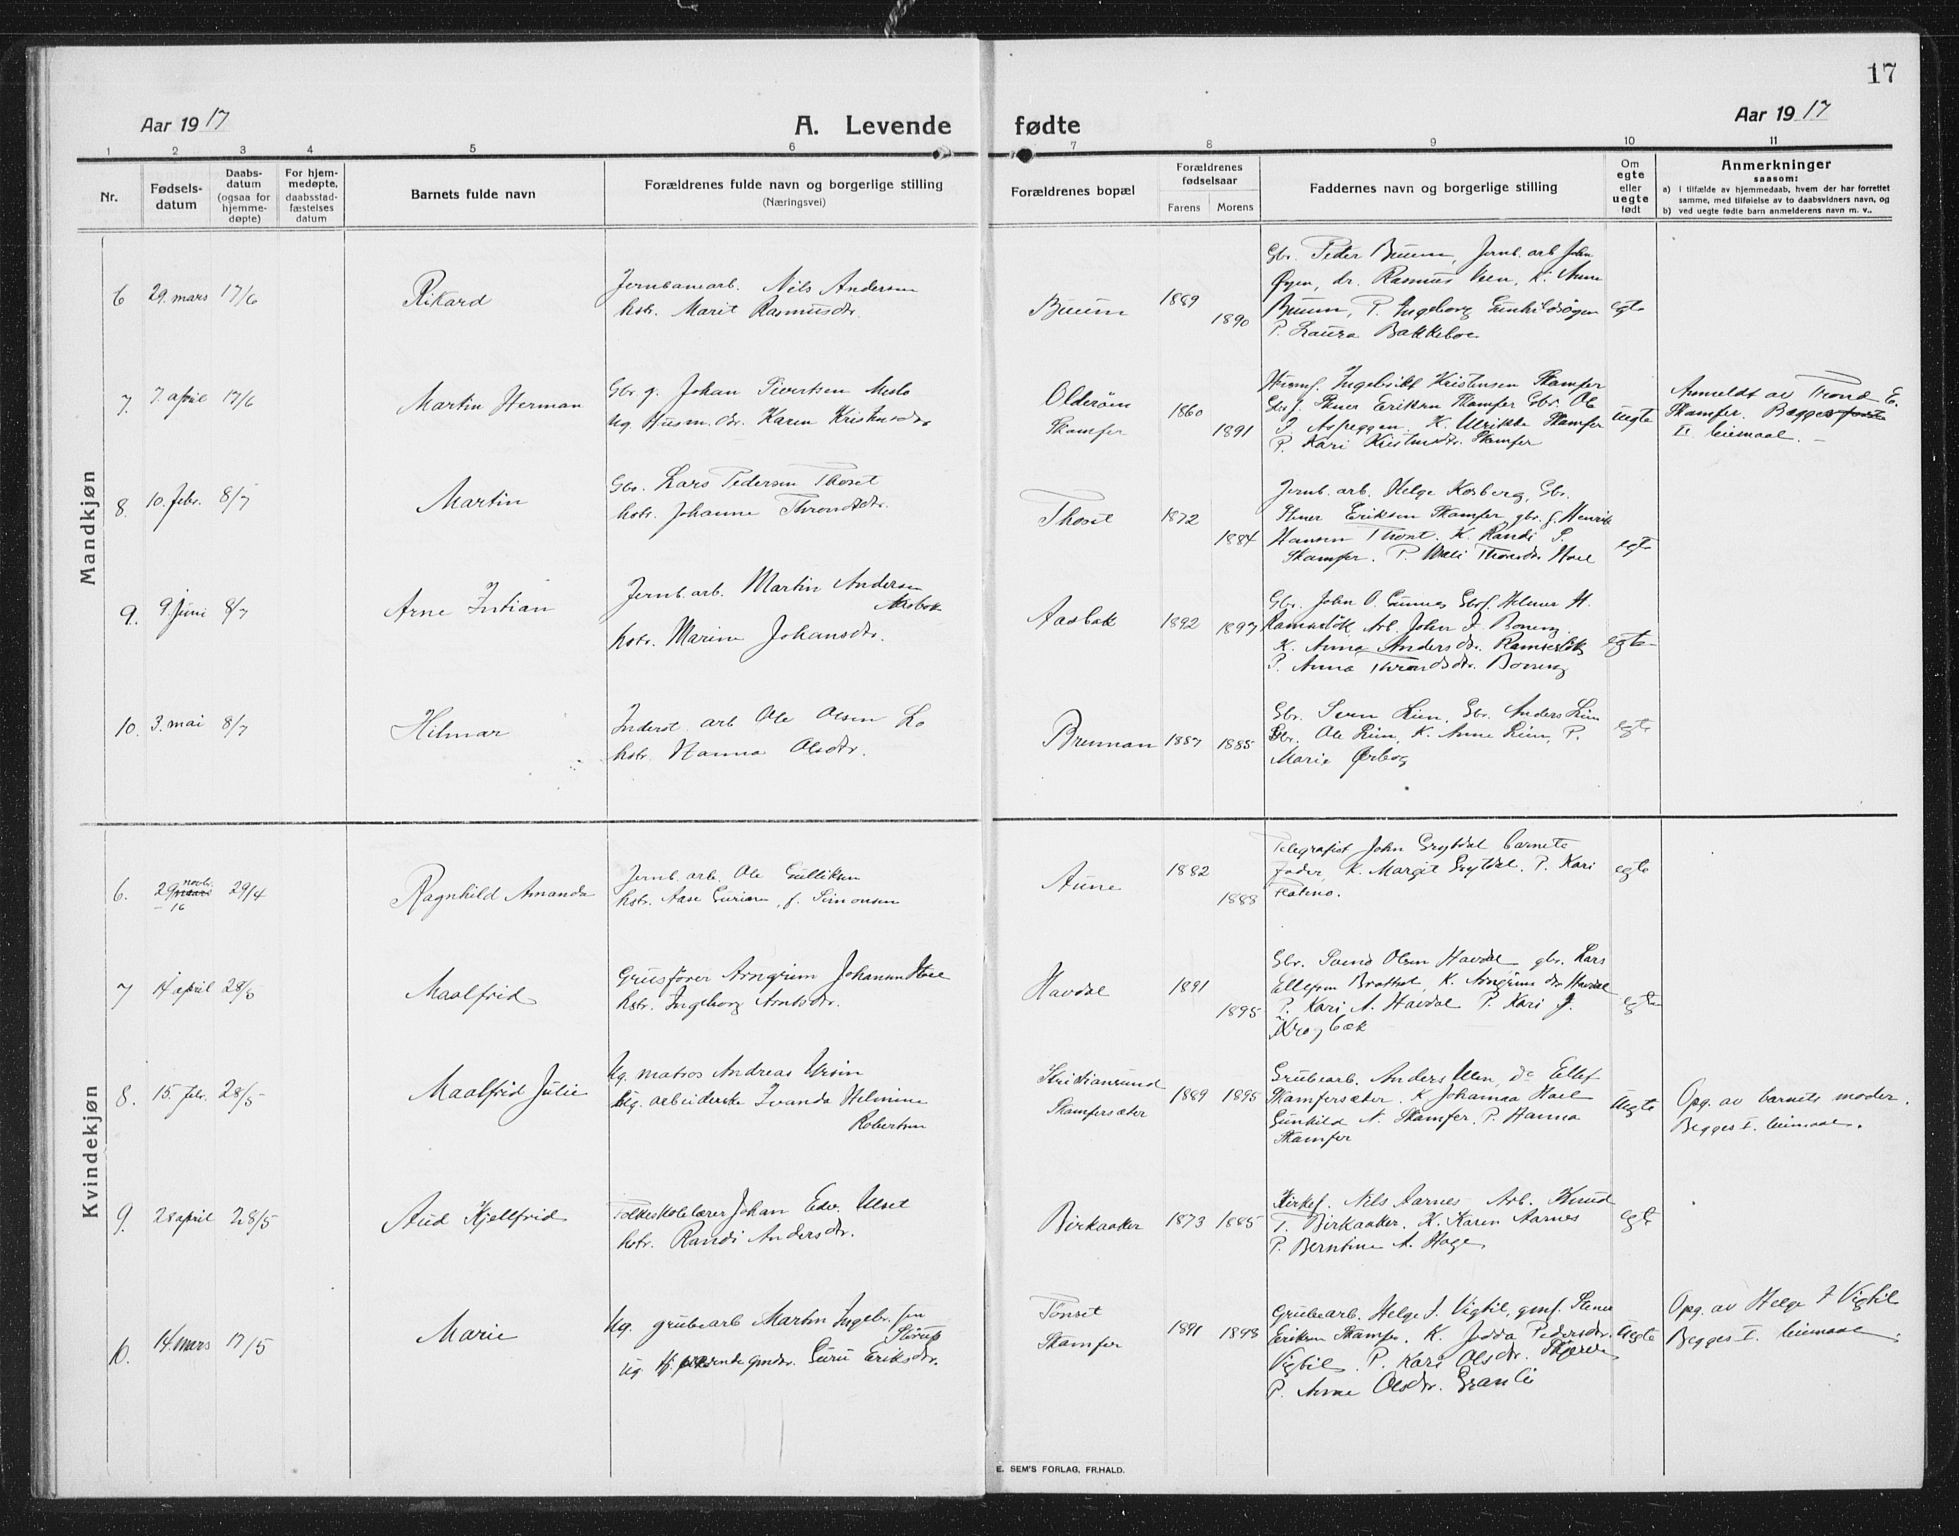 17
Aar 1917
A. Levende fødte
Aar 1917
1 2 3 4 5 6 7 8 9 10 11
Nr.
Fødsels-
datum
Daabs-
datum
(ogsaa for
hjemme-
døpte)
For hjem-
medøpte,
daabsstad-
fæstelses
datum
Barnets fulde navn
Forældrenes fulde navn og borgerlige stilling
(Næringsvei)
Forældrenes bopæl
Forældrenes
fødselsaar
Farens Morens
Faddernes navn og borgerlige stilling
Om
egte
eller
uegte
født
Anmerkninger
saasom:
a) I tilfælde av hjemmedaab, hvem der har forrettet
samme, med tilføielse av to daabsvidners navn, og
b) ved uegte fødte barn anmelderens navn m. v..
Mandkjøn
6 29. mars 17/6 Rikard
Jernbanearb. Nils Andersen
hstr. Marit Rasmusdtr.
Buum 1889 1890
Gbr. Peder Buum, Jernb. arb John
Øyen, dr. Rasmus Veen, K. Anne
Buum, P. Ingeborg Gunhildsøyen
P. Laura Bakkeboe
egte
7. 7. april 17/6 Martin Herman
Gbr g. Johan Sivertsen Meslo
ug Husm. dtr. Karen Kristensdtr
Olderøien
Skamfer
1860 1891
Husmf. Ingebrikt Kristensen Skamfer
Gbr f. Stener Eriksen Skamfer Gbr. Ole
J Aspeggen. K. Ulrikke Skamfer
P. Kari Kristensdtr. Skamfer
uegte
Anmeldt av Trond E.
Skamfer. Begges første
I. leiemaal. –
8. 10. febr. 8/7 Martin
Gbr. Lars Pedersen Thoset
hstr. Johanne Throndsdtr.
Thoset 1872 1884
Jernb. arb. Helge Kosberg, Gbr.
Stener Eriksen Skamfer, gbr. f. Henrik
Hansen Thoset. K. Randi S.
Skamfer. P. Mali Thoresdtr Hoel
egte
9. 9. Juni 8/7 Arne Intian
Jernb. arb. Martin Andersen
Aasbak
hstr. Marine Johansdtr.
Aasbak 1892 1897
Gbr. John O. Gunnes Gbrf. Helmer H.
Ramsesløk Arb. John J. Boneng
K. Anna Andersdtr. Ramsesløk
P. Anna Throndsdtr. Boneng
egte
10. 3. mai 8/7 Hilmar
Inderst. arb Ole Olsen Lo
hstr. Hanna Olsdtr.
Brennan 1887 1885
Gbr. Sven Lien, Gbr. Anders Lien
Gbr. Ole Lien, K. Anne Lien, P.
Marie Ørbog
egte
Kvindekjøn
6. 29 novbr. mars 29/4 Ragnhild Amanda
– 16
Jernb. arb. Ole Gulliksen
hstr. Aase Gurine, f. Simonsen
Aune 1882 1888
Telegrafist John Grytdal barnets
Fader, K. Margit Grytdal. P. Kari
Flatmo.
egte
7 14 april 28/5 Maalfrid
Grusfører Arngrim Johansen Hoel
hstr. Ingeborg Arntsdtr.
Havdal 1891 1895
Gbr. Svend Olsen Havdal gbr. Lars
Ellefsen Brattset, K. Arngrims dtr Havdal
P. Kari A. Havdal P. Kari J.
Krogbæk
egte
8. 15. febr. 28/5 Maalfrid Julie
Ug. matros Andreas Ursin
Ug. arbeiderske Ivanda Helmine
Robertsen
Kristiansund
Skamfersæter
1889 1895
Grubearb. Anders Uen, do Ellef
Skamfersæter. K Johanna Hoel
Gunhild A. Skamfer. P. Hanna
Skamfer
Uegte
Opg. av barnets moder.
Begges I. leiemaal.
9. 28 april 28/5 Aud Kjellfrid
Folkeskolelærer Johan Edv. Ulset
hstr. Randi Andersdtr.
Birkaaker 1873 1885
Kirkef. Nils Aarnes Arb. Knud
T. Birkaaker. K. Karen Aarnes
P. Berntine A. Hage
egte
10. 14. mars 17/5 Marie
Ug. grubearb Martin Ingebr. sen
Størup
Ug gmdr. Guru Eriksdtr.
Tønset
Skamfer
1891 1898
Grubearb. Helge J. Vigtil, gmf. Stener
Eriksen Skamfer. K. Jodda Pedersdtr.
Vigtil. P. Kari Olsdtr. Skjerve
P. Anne Olsdtr. Granli
Uegte
Opg. av Helge J Vigtil
Begges I. leiemaal.
E. SEM'S FORLAG, FR.HALD.